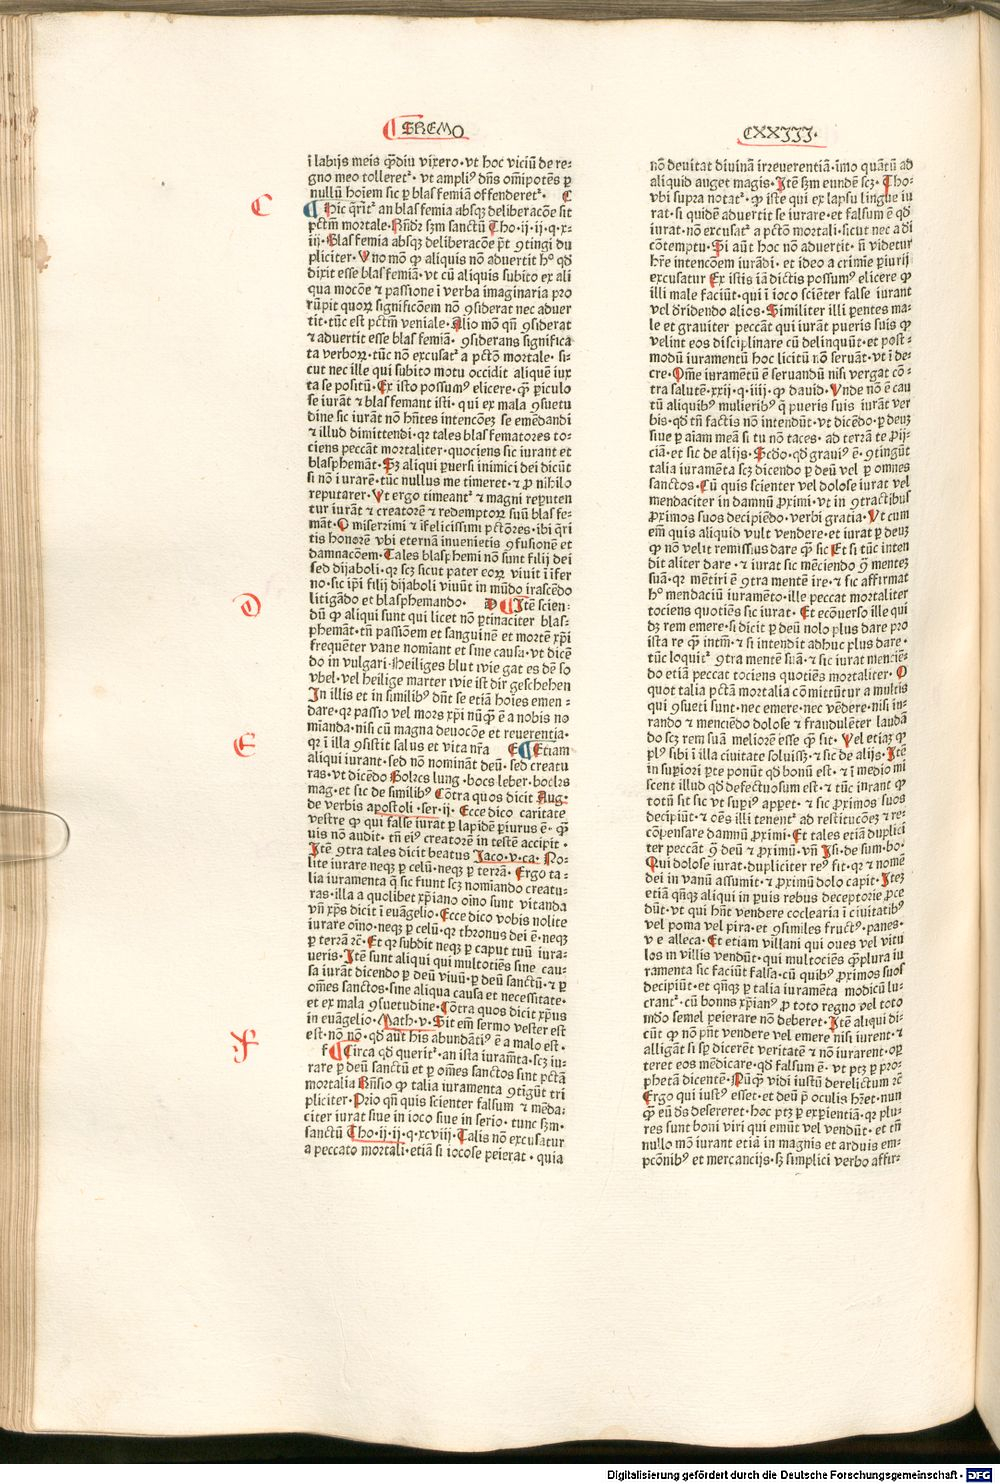 SERMO
CXXIII.
ī labijs meis q̄diu vixero·vt hoc viciū de re-
gno meo tolleretᵗ·vt ampliꝰ dñs om̄ipotēs ꝑ
nullū hoīem sic ꝑ blasfemiā offenderetᵗ· C
Hic q̄ritᵗ an blasfemia absqꝫ deliberacōe sit
pctm̄ mortale·Rñdꝛ sꝫm sanctū Tho·ij·ij·q·x-
iij·Blasfemia absqꝫ deliberacōe pt̄ ꝯtingi du
pliciter·Vno mō ꝙ aliquis nō aduertit hᵒ qd̄
dixit esse blasfemiā·vt cū aliquis subito ex ali
qua mocōe ⁊ passione ī verba imaginaria pro
rūpit quoꝝ significōem nō ꝯsiderat nec aduer
tit·tūc est pctm̄ veniale·Alio mō qn̄ ꝯsiderat
⁊ aduertit esse blasfemiā·ꝯsiderans significa
ta verboꝝ·tūc nō excusatᵗ a pctō mortale·si-
cut nec ille qui subito motu occidit aliquē iux
ta se positū·Ex isto possumꝰ elicere·q̄ ꝑiculo
se iurāt ⁊ blasfemant isti·qui ex mala ꝯsuetu
dine sic iurāt nō hn̄tes intencōeꝫ se emēdandi
⁊ illud dimittendi·qꝛ tales blasfematores to-
ciens peccāt mortaliter·quociens sic iurant et
blasphemāt·Sꝫ aliqui ꝑuersi inimici dei dicūt
si nō iurarē·tūc nullus me timeret·⁊ ꝓ nihilo
reputarer·Vt ergo timeantᵗ ⁊ magni reputen
tur iurāt ⁊ creatorē ⁊ redemptoꝝ suū blasfe-
māt·O miserrimi ⁊ īfelicissimi pctōres·ibi q̄ri
tis honorē vbi eternā inuenietis ꝯfusionē et
damnacōem·Tales blasphemi nō sunt filij dei
sed dijaboli·qꝛ scꝫ sicut pater eoꝝ viuit ī ifer
no·sic ip̄i filij dijaboli viuūt in mūdo irascēdo
litigādo et blasphemando· D Itē scien-
dū ꝙ aliqui sunt qui licet nō ꝑtinaciter blas-
phemāt·tn̄ passiōem et sanguinē et mortē xp̄i
frequēter vane nomīant et sine causa·vt dicē
do in vulgari·Heiliges blut wie gat es dē so
vbel·vel heilige marter wie ist dir geschehen
In illis et in similibꝰ dn̄t se etiā hoīes emen-
dare·qꝛ passio vel mors xp̄i nūq̄ ē a nobis no
mīanda·nisi cū magna deuocōe et reuerentia·
qꝛ ī illa ꝯsistit salus et vita nr̄a E Etiam
aliqui iurant·sed nō nomināt deū·sed creatu
ras·vt dicēdo Bolꝛes lung·bocs leber·boclꝛs
mag·et sic de similibꝰ Cōtra quos dicit Aug·
de verbis apostoli·ser·ij·Ecce dico caritate
vestre ꝙ qui false iurat ꝑ lapidē ꝑiurus ē·q̄
uis nō audit·tn̄ eiꝰ creatorē in testē accipit·
Itē ꝯtra tales dicit beatus Jaco·v·ca·No-
lite iurare neqꝫ ꝑ celū·neqꝫ ꝑ terrā·Ergo ta-
lia iuramenta q̄ sic fiunt scꝫ nomīando creatu-
ras·illa a quolibet xp̄iano oīno sunt vitanda
vn̄ xp̄s dicit ī euāgelio·Ecce dico vobis nolite
iurare oīno·neqꝫ ꝑ celū·qꝛ thronus dei ē·neqꝫ
ꝑ terrā ꝛc̄·Et qꝛ subdit neqꝫ ꝑ caput tuū iura-
ueris·Itē sunt aliqui qui multotiēs sine cau-
sa iurāt dicendo ꝑ deū viuū·ꝑ deū sanctū·⁊ ꝑ
om̄es sanctos·sine aliqua causa et necessitate·
et ex mala ꝯsuetudine·Cōtra quos dicit xp̄us
in euāgelio·Math·v·Sit em̄ sermo vester est
est·nō nō·qd̄ aūt his abundātiꝰ ē a malo est·
f Circa qd̄ queritᵗ·an ista iuram̄ta·scꝫ iu-
rare ꝑ deū sanctū et ꝑ om̄es sanctos sint pctā
mortalia Rn̄sio ꝙ talia iuramenta ꝯtigūt tri
pliciter·Prio qn̄ quis scienter falsum ⁊ mēda-
citer iurat siue in ioco siue in serio·tunc sꝫm·
sanctū Tho·ij·ij·q·xcviij·Talis nō excusatur
a peccato mortali·etiā si iocose peierat·quia
nō deuitat diuinā irreuerentiā·īmo quātū ad
aliquid auget magis·Itē sꝫm eundē scꝫ·Tho·
vbi supra notatᵗ·ꝙ iste qui ex lapsu lingue iu
rat·si quidē aduertit se iurare·et falsum ē qd̄
iurat·nō excusatᵗ a pctō mortali·sicut nec a di
cōtemptu·Si aūt hoc nō aduertit·ñ videtur
hr̄e intencōem iurādi·et ideo a crimīe ꝑiurij
excusatur Ex istis iā dictis possumꝰ elicere ꝙ
illi male faciūt·qui ī ioco sciēter false iurant
vel dridendo alios·Similiter illi ꝑentes ma-
le et grauiter peccāt qui iurāt pueris suis ꝙ
velint eos disciplinare cū delinquūt·et post-
modū iuramentū hoc licitū nō seruāt·vt ī de-
cre·Om̄e iuramētū ē seruandū nisi vergat cō-
tra salutē·xxij·q·iiij·ꝙ dauid·Vnde nō ē cau
tū aliquibꝰ mulieribꝰ q̄ pueris suis iurāt ver
bis·qd̄ tn̄ factis nō intendūt·vt dicēdo·ꝑ deuꝫ
siue ꝑ aīam meā si tu nō taces·ad terrā te ꝓij-
ciā·et sic de alijs·Scd̄o·qd̄ grauiꝰ ē·ꝯtingūt
talia iuramēta scꝫ dicendo ꝑ deū vel ꝑ omnes
sanctos·Cū quis scienter vel dolose iurat vel
mendaciter in damnū ꝓximi·vt in ꝯtractibus
ꝓximos suos decipiēdo·verbi gratia·Vt cum
em̄ quis aliquid vult vendere·et iurat ꝑ deuꝫ
ꝙ nō velit remissius dare q̄ sic Et si tūc inten
dit aliter dare·⁊ iurat sic menciēdo ꝯ menteꝫ
suā·qꝛ mētiri ē ꝯtra mentē ire·⁊ sic affirmat
hᵒ mendaciū iuramēto·ille peccat mortaliter
tociens quotiēs sic iurat·Et ecōuerso ille qui
dꝫ rem emere·si dicit ꝑ deū nolo plus dare pro
ista re q̄ intm̄·⁊ si intendit adhuc plus dare·
tūc loquitᵗ ꝯtra mentē suā·⁊ sic iurat menciē-
do etiā peccat tociens quotiēs mortaliter·O
quot talia pctā mortalia cōmittūtur a multis
qui ꝯsueti sunt·nec emere·nec vēdere·nisi iu-
rando ⁊ menciēdo dolose ⁊ fraudulēter laudā
do scꝫ rem suā meliorē esse q̄ sit·Vel etiaꝫ ꝙ
plꝰ sibi ī illa ciuitate soluissꝫ·⁊ sic de alijs·Itē
in suꝑiori ꝑte ponūt qd̄ bonū est·⁊ ī medio mi
scent illud qd̄ defectuosum est·⁊ tūc iurant ꝙ
totū sit sic vt supꝰ apꝑet·⁊ sic ꝓximos suos
decipiūt·⁊ oēs illi tenentᵗ ad restitucōeꝫ ⁊ re-
cōpensare damnū ꝓximi·Et tales etiā duplici
ter peccāt ꝯ deū ⁊ ꝓximū·vn̄ Isi·de sum·bo·
Qui dolose iurat·dupliciter reꝰ fit·qꝛ ⁊ nomē
dei in vanū assumit·⁊ ꝓximū dolo capit·Iteꝫ
etiā qn̄qꝫ aliqui in ꝑuis rebus deceptorie ꝓce
dūt·vt qui hn̄t vendere coclearia ī ciuitatibꝰ
vel poma vel pira·et ꝯsimiles fructꝰ·panes·
v e alleca·Et etiam villani qui oues vel vitu
los in villis vendūt·qui multociēs q̄plura iu
ramenta sic faciūt falsa·cū quibꝰ ꝓximos suos
decipiūt·et qn̄qꝫ ꝑ talia iuramēta modicū lu-
crantᵗ·cū bonus xp̄ianꝰ ꝓ toto regno vel toto
mdo semel peierare nō deberet·Itē aliqui di-
cūt ꝙ nō pn̄t vendere vel emere nisi iurent·⁊
alligāt si sp̄ dicerēt veritatē ⁊ nō iurarent·oꝑ
teret eos mēdicare·qd̄ falsum ē·vt ptꝫ ꝑ pro-
phetā dicentē·Nūq̄ vidi iustū derelictum ꝛc̄
Ergo qui iustꝰ esset·et deū p̄ oculis hr̄et·nun
q̄ eū dꝰ desereret·hoc ptꝫ ꝑ exꝑientiā·qꝛ plu-
res sunt boni viri qui emūt vel vendūt·et tn̄
nullo mō iurant etiā in magnis et arduis em-
pcōnibꝰ et mercancijs·sꝫ simplici verbo affir-
C
D
E
F
Digitalisierung gefördert durch die Deutsche Forschungsgemeinschaft - DFG